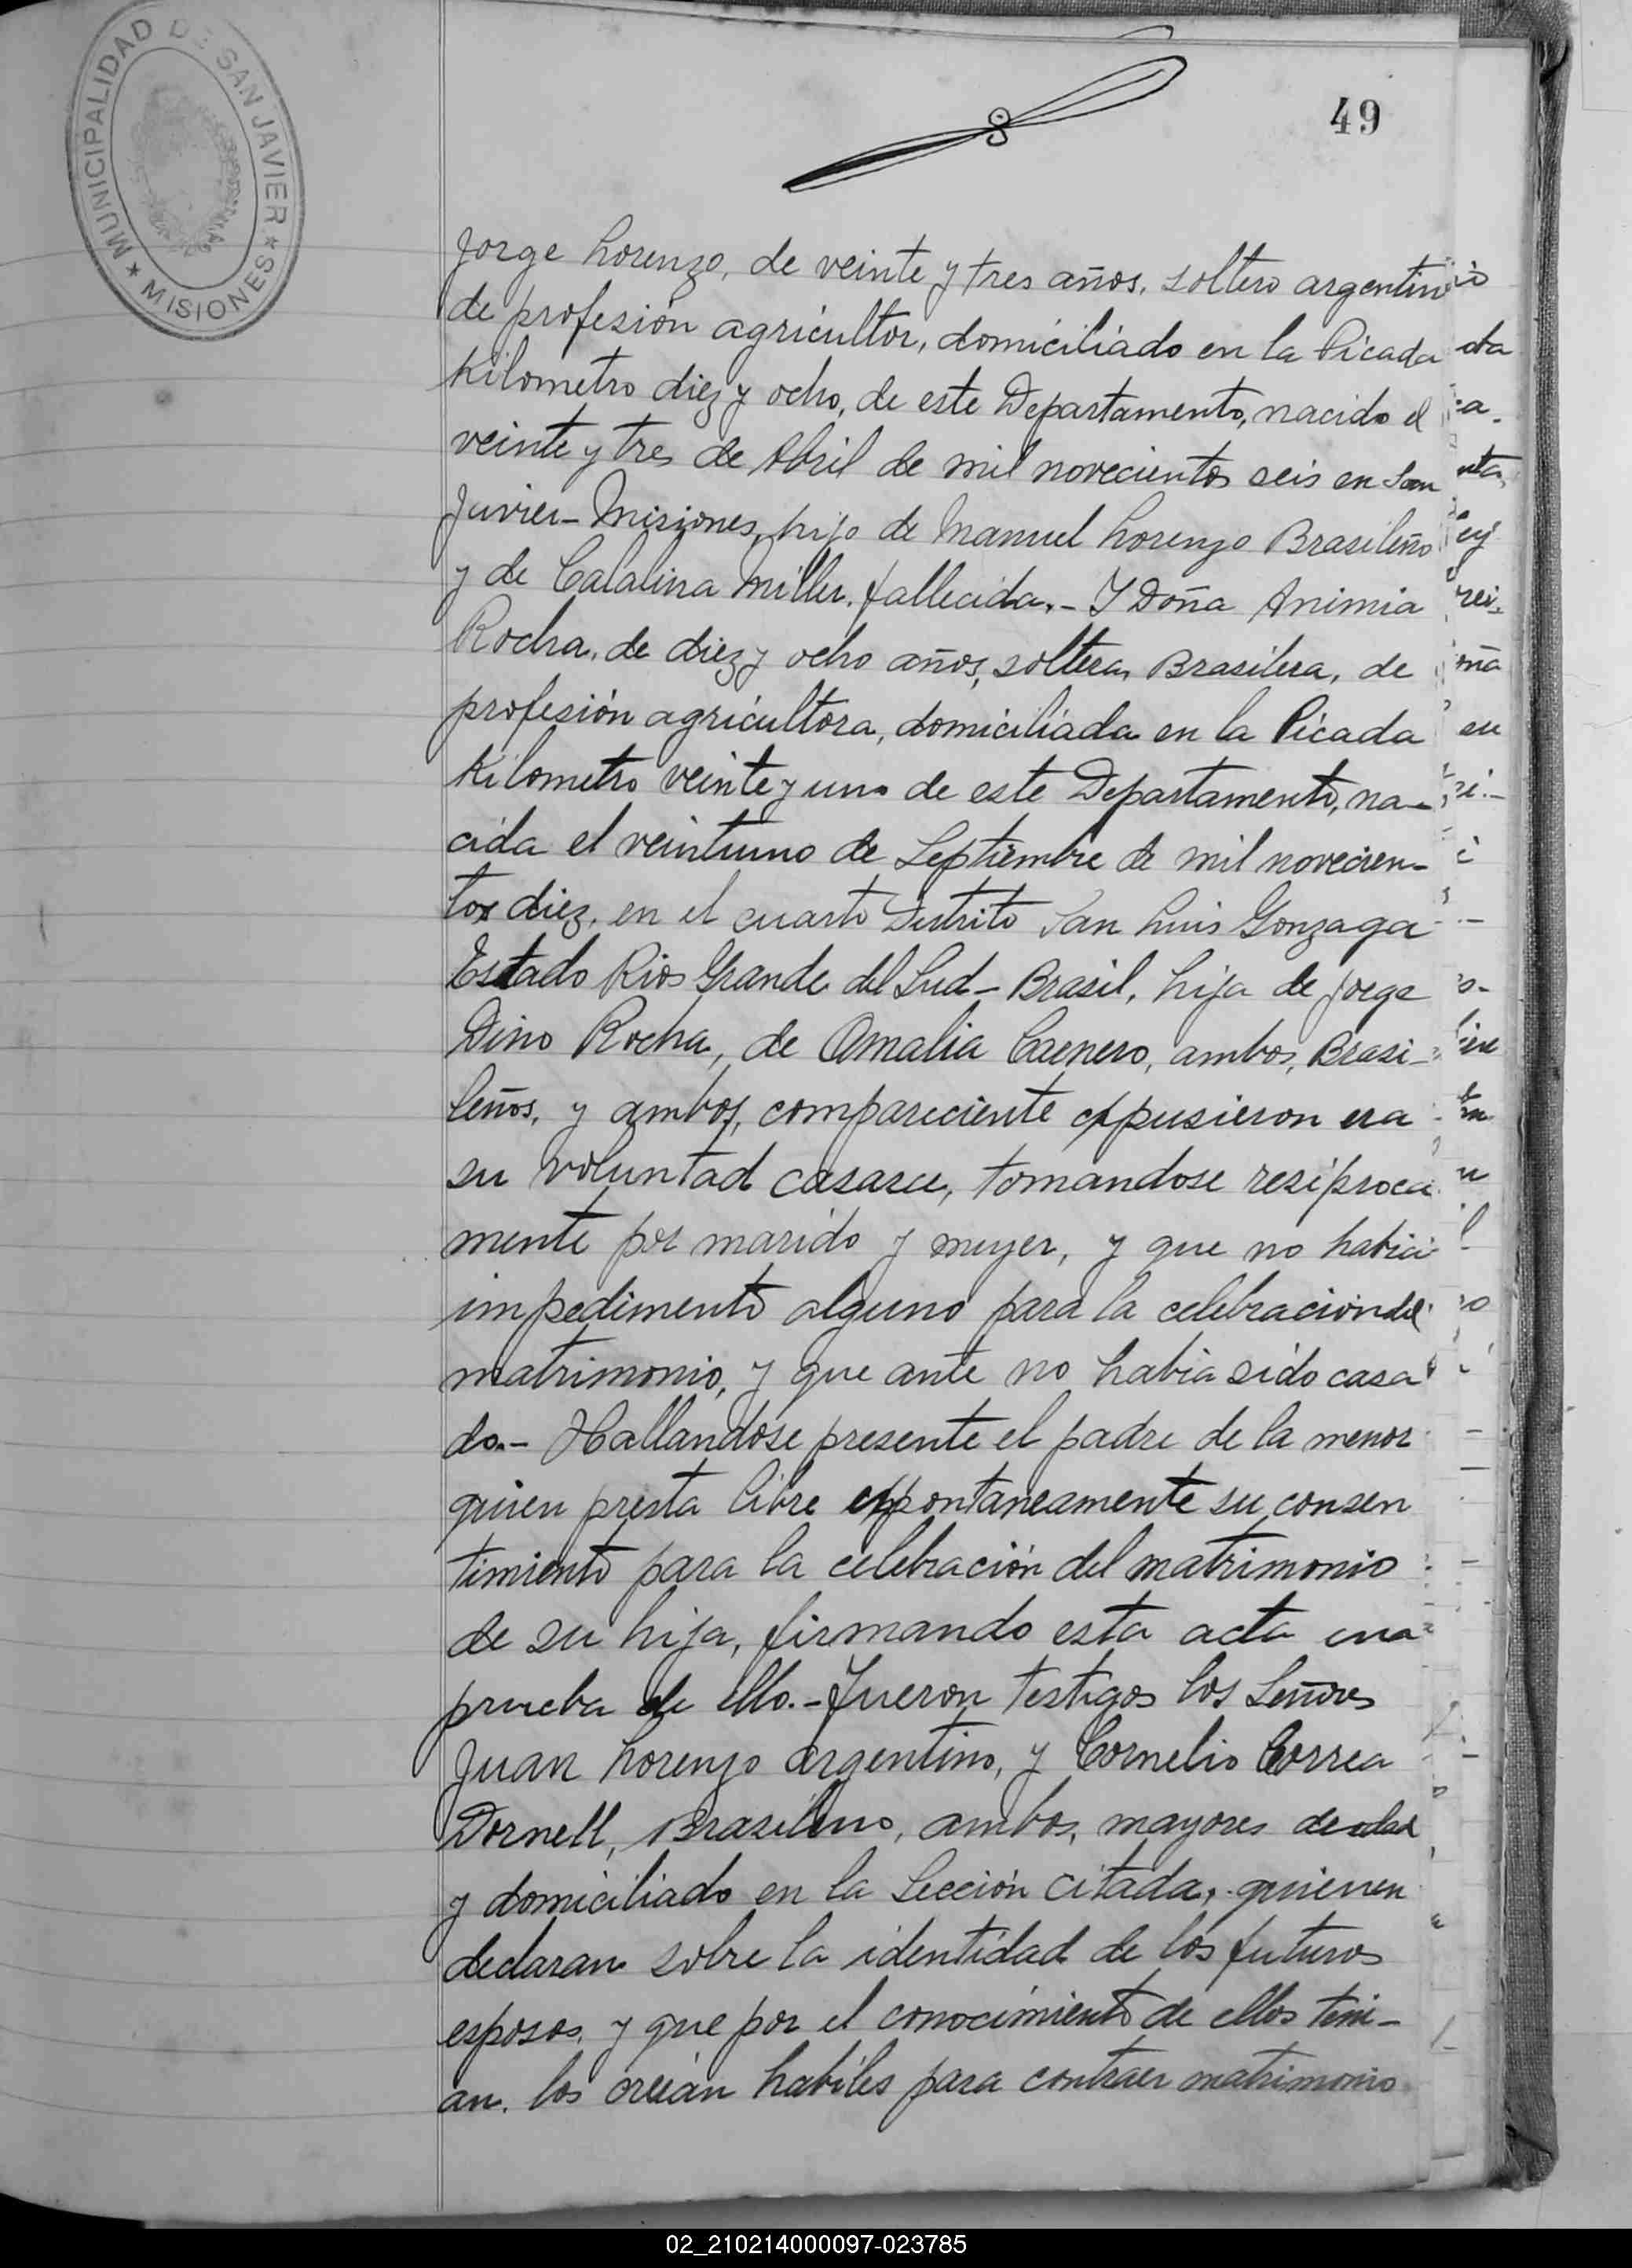 MUNICIPALIDAD DE SAN JAVIER
★ MISIONES ★
49
Jorge Lorenzo, de veinte y tres años, soltero argentino
de profesión agricultor, domiciliado en la Picada
Kilometro diez y ocho, de este Departamento, nacido el
veinte y tres de Abril de mil novecientos seis en San
Javier - Misiones, hijo de Manuel Lorenzo Brasileño
y de Catalina Miller. fallecida. - Y Doña Animia
Rocha, de diez y ocho años, soltera, Brasilera, de
profesión agricultora, domiciliada en la Picada
Kilometro veinte y uno de este Departamento, na-
cida el veintiuno de Septiembre de mil novecien-
tos diez, en el cuarto Distrito San Luis Gonzaga
Estado Rios Grande del Sud - Brasil, hija de Jorge
Dino Rocha, de Amalia Carnero, ambos, Brasi-
leños, y ambos, compareciente expusieron era
su voluntad casarse, tomandose resiproca
mente por marido y muyer, y que no habia
impedimento alguno para la celebración del
matrimonio, y que ante no habia sido casa
do. - Hallandose presente el padre de la menor
quien presta libre espontaneamente su consen
timiento para la celebración del matrimonio
de su hija, firmando esta acta en
prueba de ello. - Fueron testigos los Señores
Juan Lorenzo argentino, y Cornelio Correa
Dornell, Brasileno, ambos, mayores de edad
y domiciliado en la Sección citada, quienen
declaran sobre la identidad de los futuros
esposos, y que por el conocimiento de ellos teni-
an. los creian habiles para contraer matrimonio
02_210214000097-023785